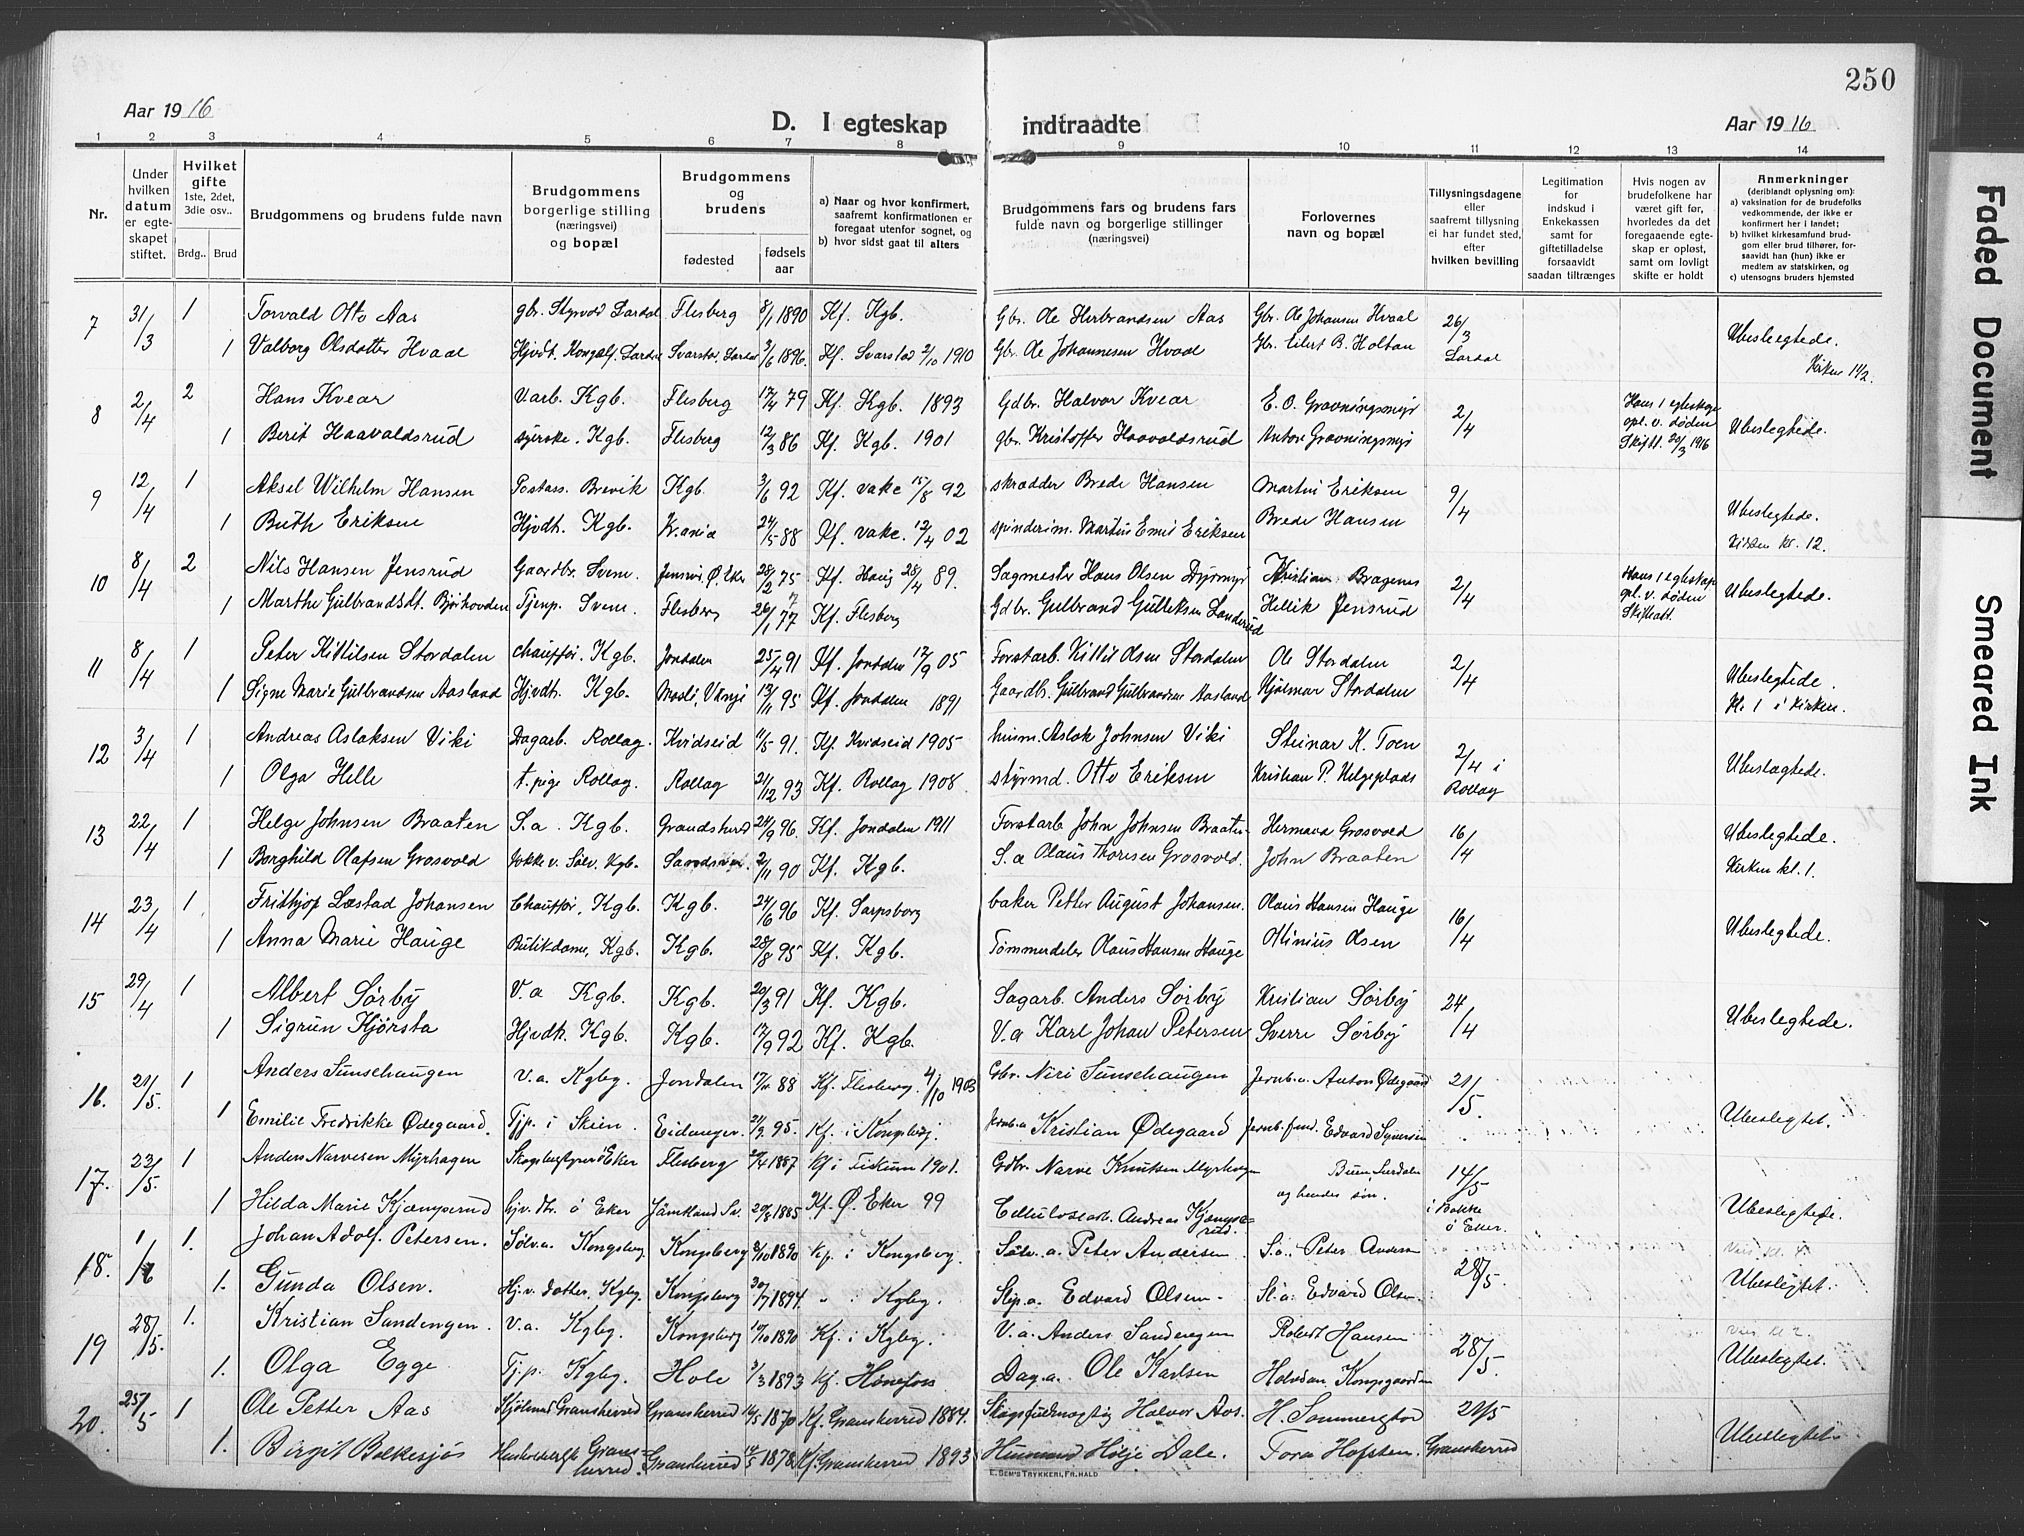 250
Aar 1916
D. I egteskap indtraadte
Aar 1916
1 2 3 4 5 6 7 8 9 10 11 12 13 14
Nr.
Under hvilken datum er egteskapet stiftet.
Hvilket gifte 1ste, 2det, 3die osv..
Brdg.. Brud
Brudgommens og brudens fulde navn
Brudgommens borgerlige stilling (næringsvei) og bopæl
Brudgommens og brudens
fødested
fødselsaar
a) Naar og hvor konfirmert, saafremt konfirmationen er foregaat utenfor sognet, og
b) hvor sidst gaat til alters
Brudgommens fars og brudens fars fulde navn og borgerlige stillinger (næringsvei)
Forlovernes navn og bopæl
Tillysningsdagene eller saafremt tillysning ei har fundet sted, efter hvilken bevilling
Legitimation for indskud i Enkekassen samt for giftetilladelse forsaavidt saadan tiltrænges
Hvis nogen av brudefolkene har været gift før, hvorledes da det foregaaende egteskap er opløst, samt om lovligt skifte er holdt
Anmerkninger (deriblandt oplysning om):
a) vaksination for de brudefolks vedkommende, der ikke er konfirmert her i landet;
b) hvilket kirkesamfund brudgom eller brud tilhører, forsaavidt han (hun) ikke er medlem av statskirken, og
c) utensogns bruders hjemsted
7 31/3 1 Torvald Otto Aas gbr. Styrvod Lardal Flesberg 8/1 1890 Kf. Kgb. Gbr. Ole Herbrandsen Aas Gbr. Ole Johansen Hvaal 26/3 Lardal Ubeslegtede.
1 Valborg Olsdatter Hvaal Hjvdt. Lardal Svarstad, Lardal 3/6 1896. Kf. Svarstad 2/10 1910 Gbr. Ole Johannesen Hvaal Gbr. Eilert B. Holtan Kirken 1 1/2.
8 2/4 2 Hans Kvear V.arb. Kgb. Flesberg 17/4 79 Kf. Kgb. 1893 Gdbr. Halvor Kvear E. O. Gravningsmyr 2/4 Hans 1 egteskap opl. v. døden Skiftt. 20/3 1916 Ubeslegtede.
1 Berit Haavaldsrud syerske. Kgb. Flesberg 12/3 86 Kf. Kgb. 1901 gbr. Kristoffer Haavaldsrud Anton Gravningsmyr
9 12/4 1 Aksel Wilhelm Hansen Postass. Brevik Kgb. 3/6 92 Kf. vake 15/8 92 skrædder Brede Hansen Martin Eriksen 9/4 Ubeslegtede.
1 Ruth Eriksen Hjvdt. Kgb. Kr.ania 24/5 88 Kf. vake. 12/4 02 spinderim. Martin Emil Eriksen Brede Hansen Kirken kl. 12.
10 8/4 2 Nils Hansen Jensrud Gaardbr. Svene. Jensrud, Ø. Eker 28/2 75 Kf. Haug 28/4 89. Sagmester Hans Olsen Dyrmyr Kristian Bragenes 2/4 Hans 1 egteskap opl. v. døden Skifteatt. Ubeslegtede.
1 Marthe Gulbrandsdt. Bjørhovden Tjenp. Svene. Flesberg 26/1 77 Kf. Flesberg Gdbr. Gulbrand Gulleksen Landerud Hellik Jensrud
11 8/4 1 Peter Kittilsen Stordalen chauffør. Kgb. Jondalen 25/4 91 Kf. Jondalen 17/9 05 Forstarb. Kittil Olsen Stordalen Ole Stordalen 2/4 Ubeslegtede.
1 Signe Marie Gulbrandsen Aasland Hjvdt. Kgb. 13/11 95 Kf. Jondalen 1891 Gaardbr. Gulbrand Gulbrandsen Aasland Hjalmar Stordalen Kl. 1 i Kirken.
12 3/4 1 Andreas Aslaksen Viki Dagarb. Rollag. Kvidseid 11/5 91. Kf. Kvidseid 1905 husm. Aslak Johnsen Viki Steinar K. Toen 2/4 i Rollag Ubeslægtede.
1 Olga Helle t. pige Rollag. Rollag 21/12 93 Kf. Rollag 1908. styrmd. Otto Eriksen Kristian P. Helgeplads
13 22/4 1 Helge Johnsen Braaten S.a. Kgb. Grandsherd 24/9 96. Kf. Jondalen 1911 Forstarb. John Johnsen Braaten Hermana Grosvold 16/4 Ubeslegtede.
1 Borghild Olafsen Grosvold Jokke v. Sølv. Kgb. 2/11 90 Kf. Kgb. S.a Olaus Thoresen Grosvold. John Braaten Kirken kl. 1.
14 23/4 1 Frithjof Læstad Johansen Chauffør, Kgb. Kgb. 24/6 96 Kf. Sarpsborg baker Petter August Johansen. Olaus Hansen Hauge 16/4 Ubeslegtede.
1 Anna Marie Hauge Butikdame, Kgb. Kgb. 28/8 95 Kf. Kgb. Tømmerdeler Olaus Hansen Hauge Olinius Olsen
15 29/4 1 Albert Sørby V.a Kgb. Kgb. 20/3 91 Kf. Kgb. Sagarb. Anders Sørby Kristian Sørby 24/4 Ubeslegtede.
1 Sigrun Kjørsta Hjvdt. Kgb. Kgb. 17/9 92 Kf. Kgb. V.a Karl Johan Petersen Sverre Sørby
16. 21/5. 1 Anders Sunsehaugen V.a. Kgbg. Jondalen 17/11 88 Kf. Flesberg. 4/10 1903 Gbr. Niri Sunsehaugen Jernb.a. Anton Ødegaard 21/5. Ubeslegtet.
1 Emilie Fredrikke Ødegaard. Tjp. i Skien. Eidanger. 21/9. 95. Kf. i Kongsberg. Jernb.a Kristian Ødegaard Jernb. fund. Edvard Syversen
17. 23/5. 1 Anders Narvesen Myrhagen Skogbestyrer Ø Eker Flesberg 1887 Kf i Fiskum 1901. Gdbr. Narve Knutsen Myrhagen og hendes søn. 14/5 i Bakke ø Eker. Ubeslegtede.
1 Hilda Marie Kjæmperud hjv. dtr. ø Eker Jämtland Sv. 20/8 1885 Kf. Ø. Eker 99 Cellulosearb. Andreas Kjæmperud.
18. 1/6 1. Johan Adolf Petersen. Sølv.a Kongsberg Kongsberg 3/10 1890 Kf. i Kongsberg. Sølv. a. Peter Andersen S.a. Peter Andersen 28/5. Ubeslegtet.
1. Gunda Olsen. Hj. v. datter. Kgbg. Kongsberg 20/7 1894. " " Kgbg. Slip.a. Edvard Olsen Sl.a. Edvard Olsen
19 28/5. 1. Kristian Sandengen. V.a. Kgbg. Kongsberg 19/10 1890 Kf. i Kgbg. V.a. Anders Sandengen Robert Hansen 28/5. Vies kl 2. Ubeslegtet.
1. Olga Egge Tj.p. Kgbg. Hole 3/3 1893 Kf. Hønefoss Dag.a. Ole Karlsen Halvdan Kongsgaarden
20. 25/5 1 Ole Petter Aas Gransherred Gransherred 16/5 1870 Kf. Gransherred 1884. Skogsfuldmægtig Halvor Aas. H. Sommerstad 21/5 Gransherred Ubeslegtet.
1. Birgit Bolkesjøs Gransherred. Gransherred 1878 Kf. Gransherred 1893 Husmand Hølje Dale. Tora Hofsten.
E. SEM'S TRYKKERI, FR. HALD
Faded Document
Smeared Ink